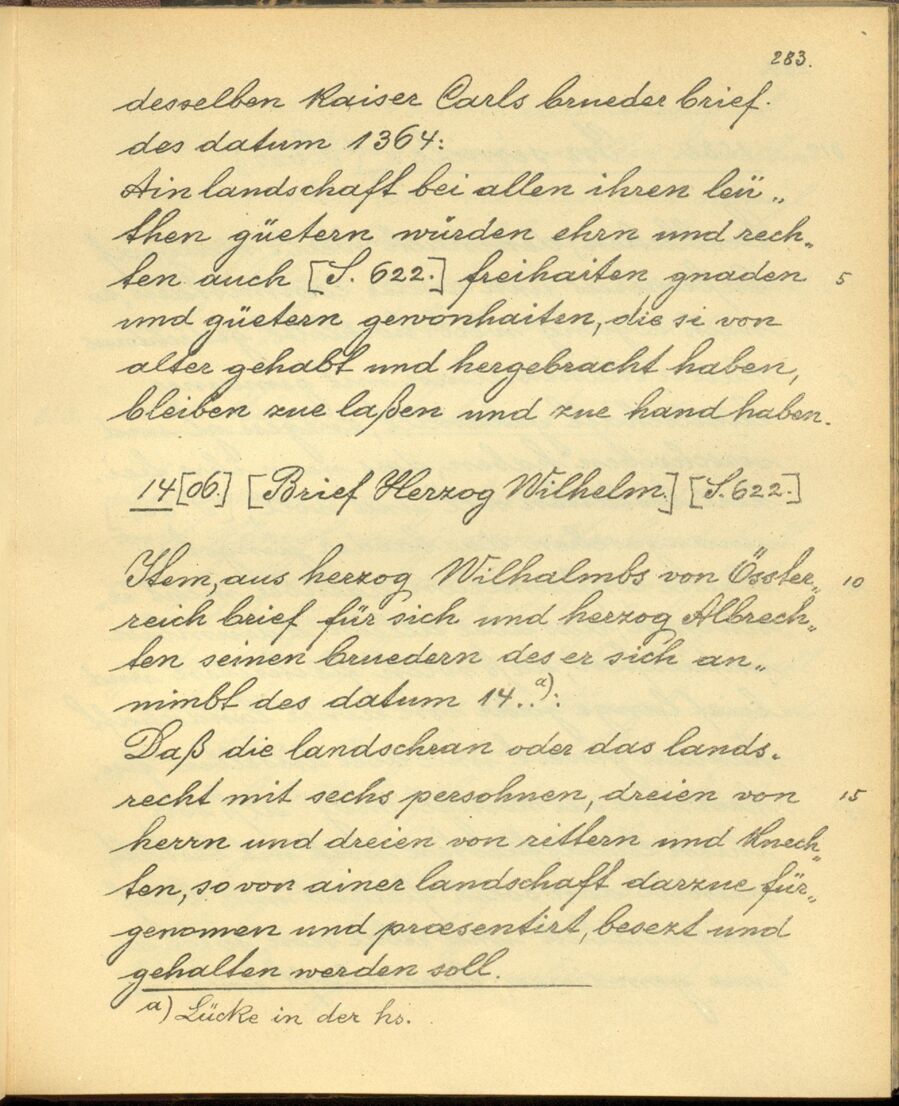 283.
desselben kaiser Carls brueder brief.
des datum 1364:
Ain landschaft bei allen ihren leü„
then güetern würden ehrn und rech„
ten auch [S. 622.] freihaiten gnaden 5
und güetern gewonhaiten, die si von
alter gehabt und hergebracht haben,
bleiben zue laßen und zue handhaben.
14[06.] [Brief Herzog Wilhelm.] [S. 622.]
Item, aus herzog Wilhalmbs von Össter„ 10
reich brief für sich und herzog Albrech„
ten seinen bruedern des er sich an„
nimbt des datum 14..a):
Daß die landschran oder das lands„
recht mit sechs persohnen, dreien von 15
herrn und dreien von rittern und knech„
ten, so von ainer landschaft darzue für„
genomen und præsentirt, besezt und
gehalten werden soll.
a) Lücke in der hs.